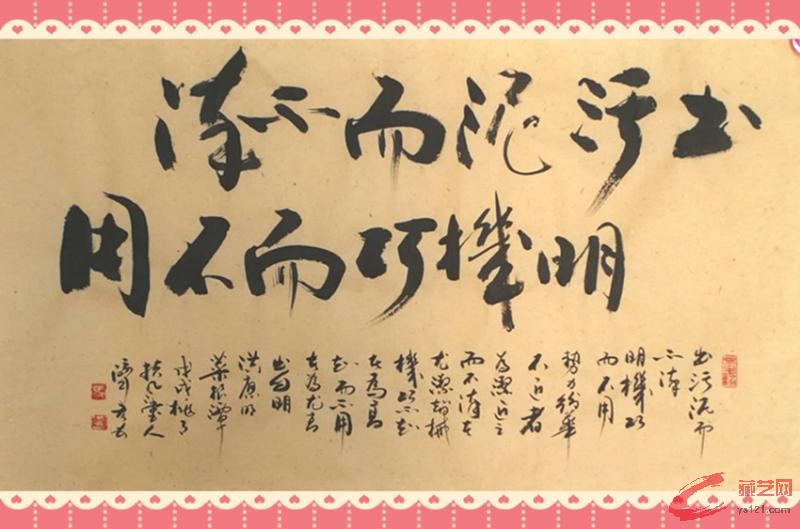 出污泥而不染
明機巧而不用
出污泥而
不染
明機巧
而不用
勢力紛華
不近者
為潔近之
而不染者
尤潔智械
機巧不知
者為高
知而不用
者為尤高
出自明
洪應明
菜根譚
戊戌桃月
藏艺网
ys121.com